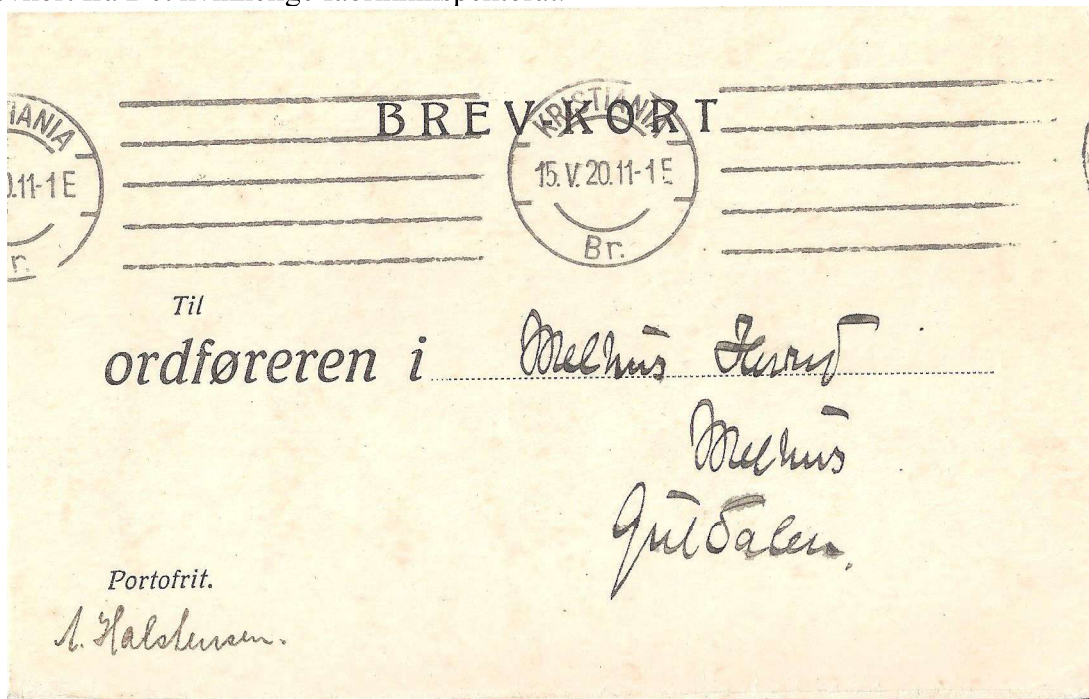 BREV-KORT
TIANIA
0.11-1 E
r.
KRISTIANIA
15. V. 20. 11-1 E
Br.
Til
ordføreren i Melhus Herred
Melhus
Guldalen.
Portofrit.
A. Halstensen.